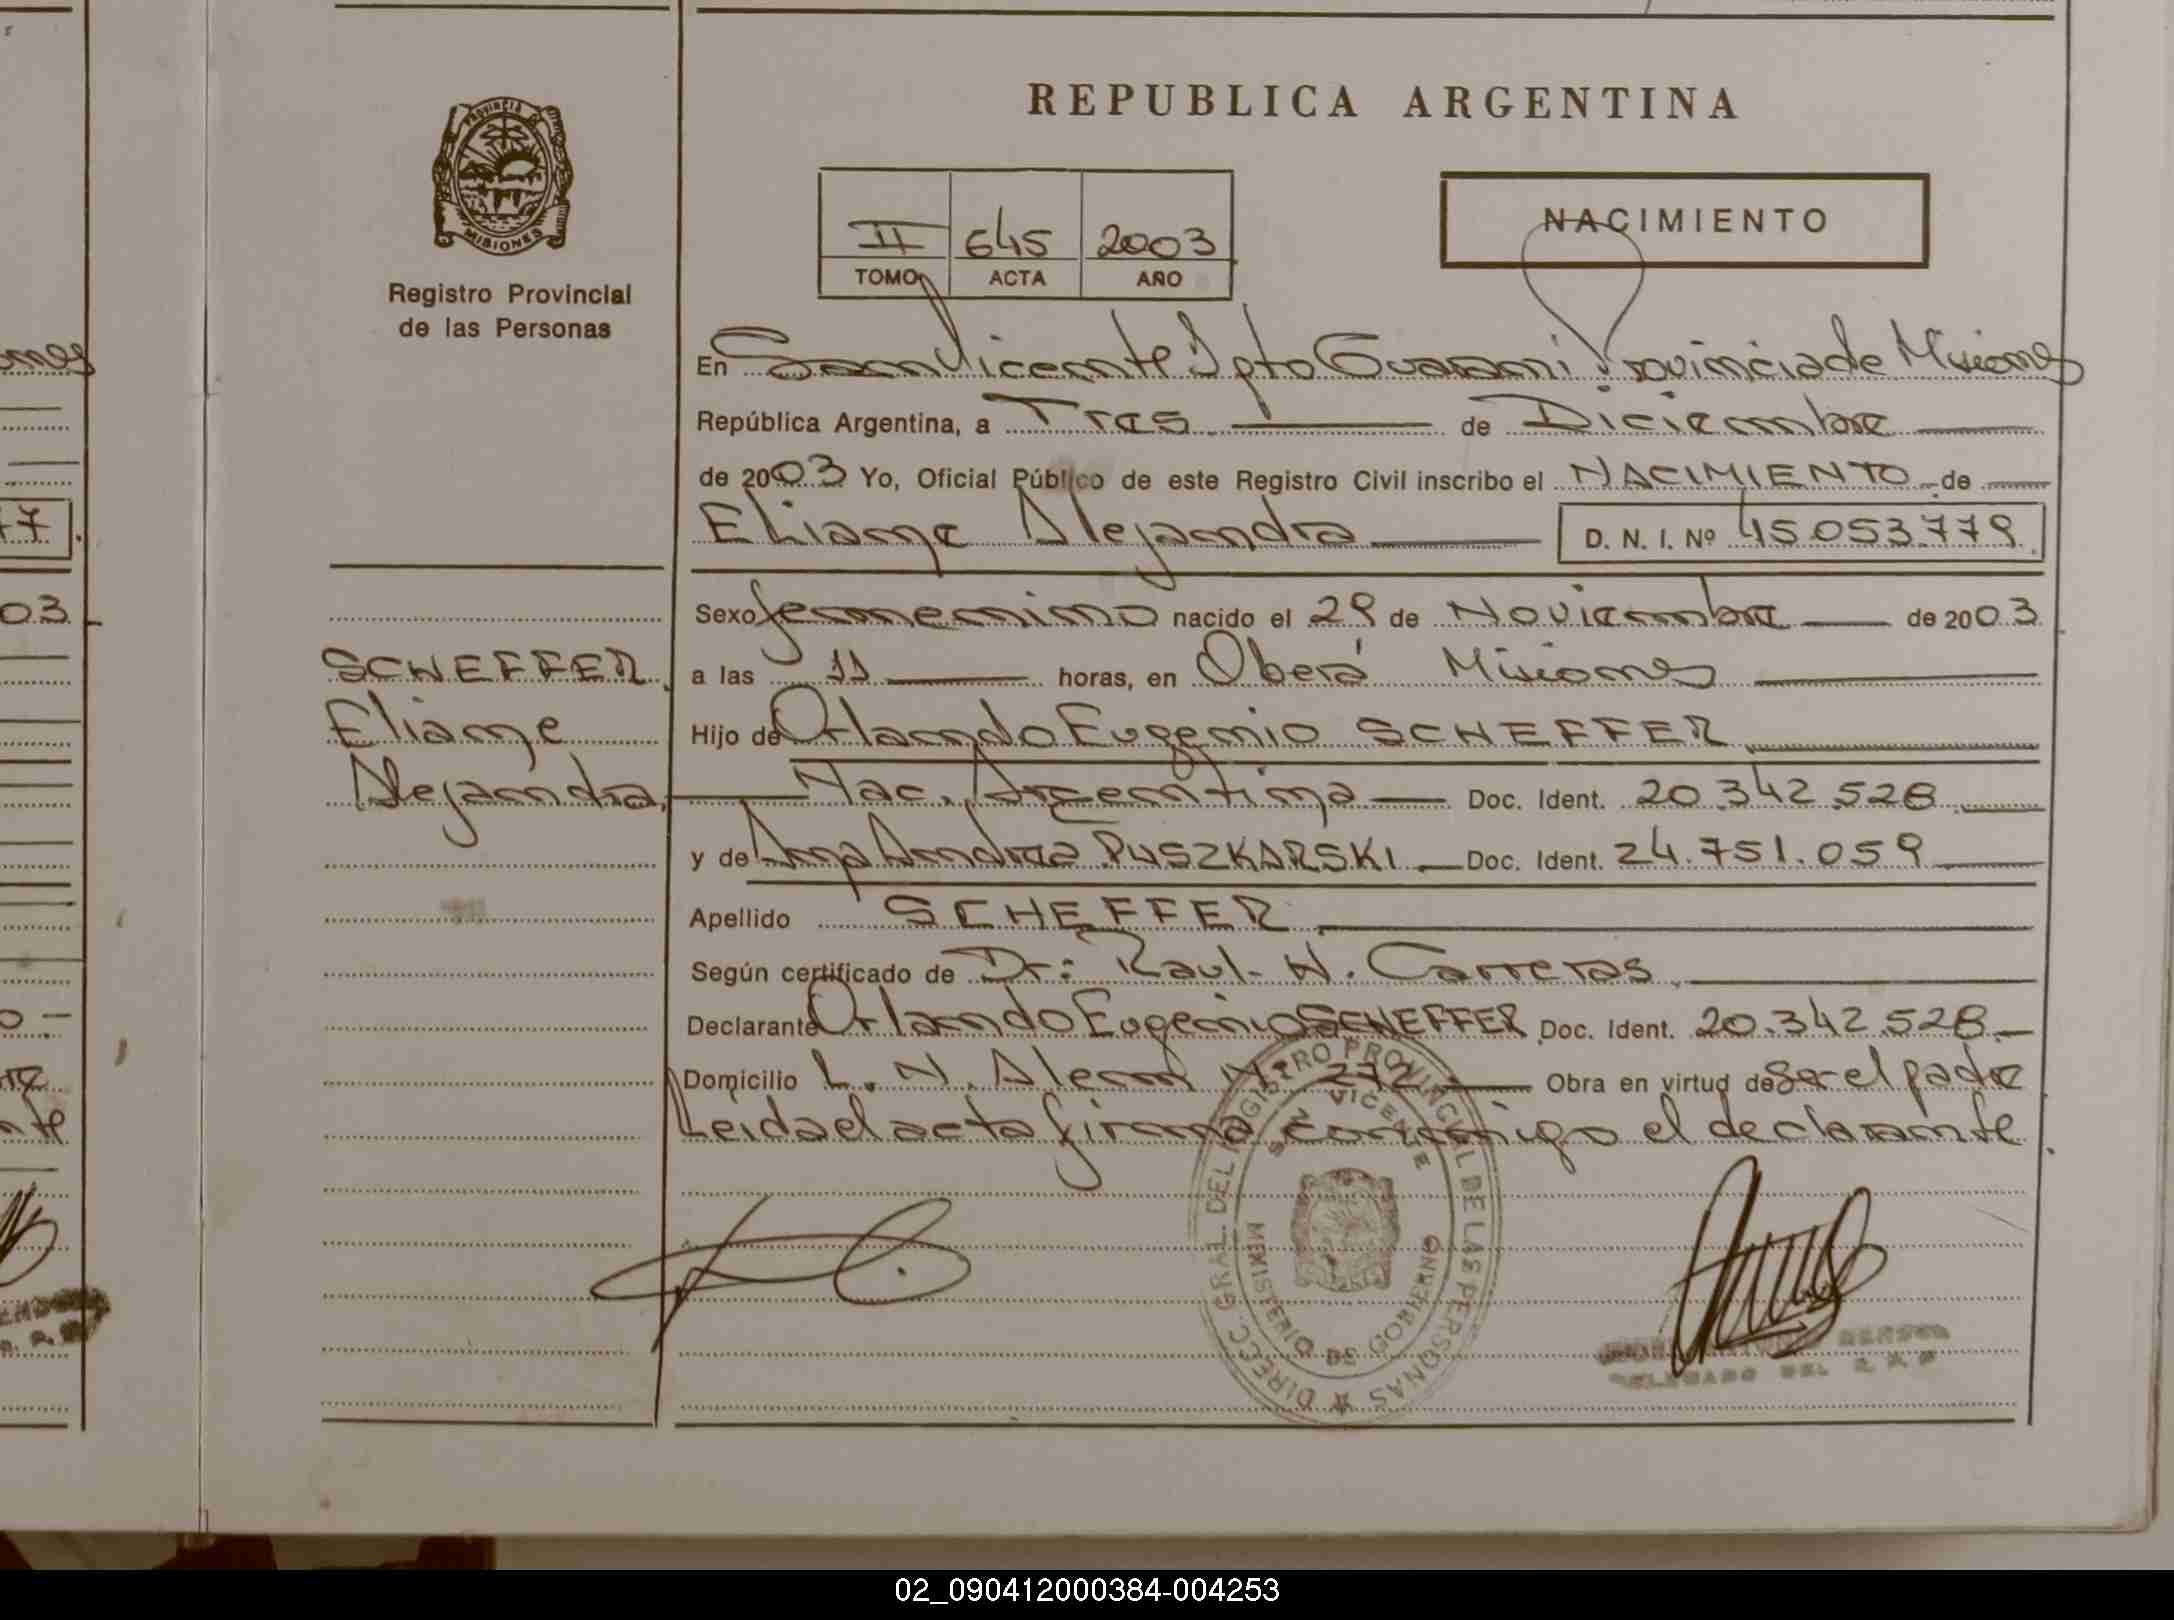 REPUBLICA ARGENTINA
PROVINCIA DE
MISIONES
Registro Provincial
de las Personas
II 645 2003
TOMO ACTA AÑO
NACIMIENTO
En San Vicente Dpto Guarani Provincia de Misiones
República Argentina, a Tres de Diciembre
de 2003 Yo, Oficial Público de este Registro Civil inscribo el NACIMIENTO de
Eliane Alejandra D. N. I. Nº 45.053.779
Sexo femenino nacido el 29 de Noviembre de 2003
SCHEFFER
Eliane
Alejandra
a las 11 horas, en Oberá Misiones
Hijo de Orlando Eugenio SCHEFFER
Nac. Argentina Doc. Ident. 20.342.528
y de Ana Andrea PUSZKARSKI Doc. Ident. 24.751.059
Apellido SCHEFFER
Según certificado de Dr: Raul- H. Carreras
Declarante Orlando Eugenio SCHEFFER Doc. Ident. 20.342.528
Domicilio L. N. Alem Nº 272 Obra en virtud de Ser el padre
Leida el acta firma conmigo el declarante
DIRECC. GRAL. DEL REGISTRO PROVINCIAL DE LAS PERSONAS
SAN VICENTE
MINISTERIO DE GOBIERNO
DELEGADO DEL R P P
02_090412000384-004253